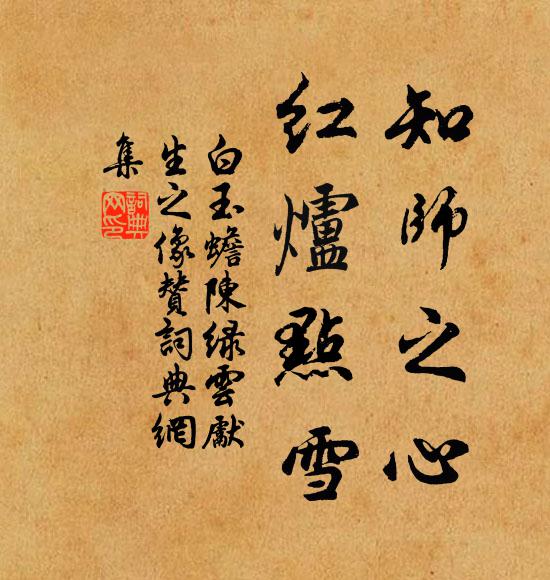 知師之心
紅爐點雪
白玉蟾陳綠雲獻
生之像贊詞典網
集
詞典
網印